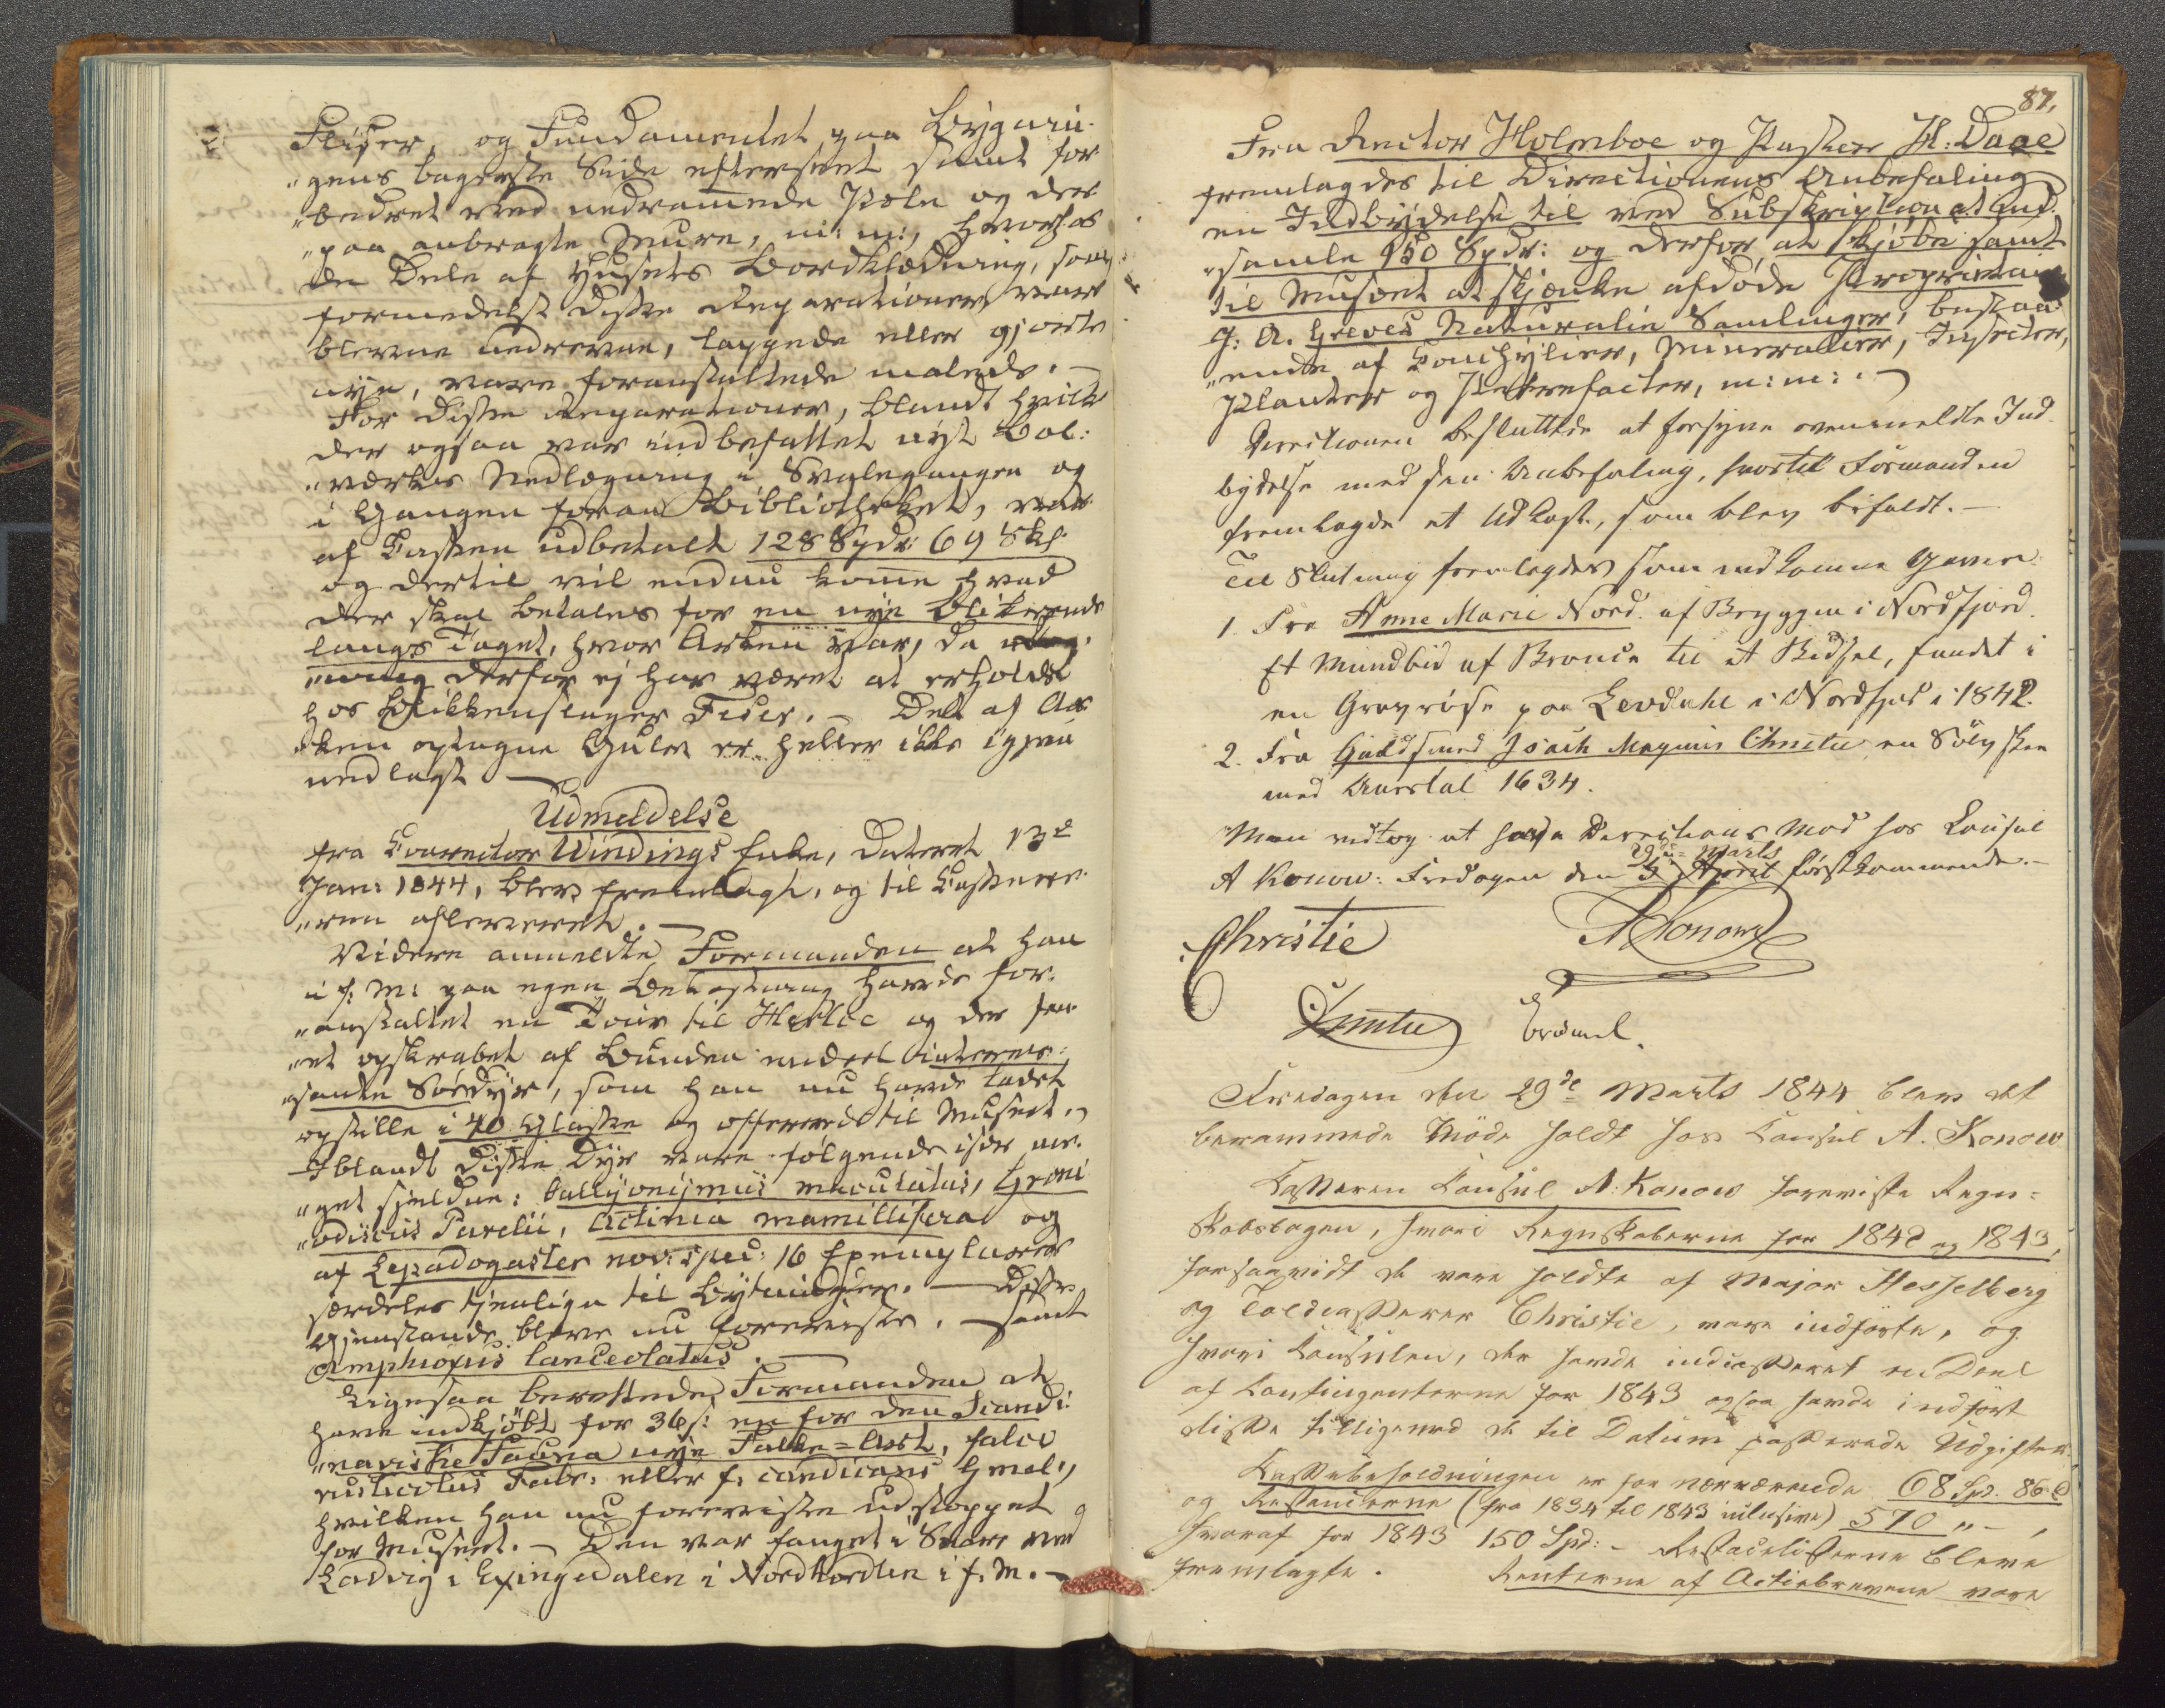 Fliser, og Fundamentet paa Bygnin-
"gens bagerste Side efterseet samt for
"bedret med nedrammede Pæle og der
"paa anbragte Mure, m: m:, hvorhos
de Dele af Husets Bordklædning, som
formedelst disse Reparationer vare
blevne nedrevne, lappede eller gjorte
nye, vare foranstaltede malede. –
For disse Reparationer, blandt hvilke
der ogsaa var indbefattet nyt Bol:
"værkes Nedlægning i Svalegangen og
i Gangen foran Bibliotheket, var
af Cassen udbetalt 128 Spdr: 69 Skf
og dertil vil endnu komme hvad
der skal betales for en nye Blikrende
langs Taget, hvor Arken var, da
"ning derfor ej har været at erholde
hos Blikkenslager Feder. – Det af Ar
"ken optagne Gulv er heller ikke igjen
nedlagt –
Udmeldelse
fra Conrector Windings Enke, dateret 13de
Jan: 1844, blev fremlagt, og til Cassere-
"ren afleveret. –
Videre anmeldte Formanden at han
i f: M: paa egen Bekostning havde for-
"anstaltet en Tour til Herløe og der fun-
"et opskrabet af Bunden endeel interes-
"sante Sødyr, som han nu havde ladet
opstille i 40 Glasse og offereret til Museet.
Iblandt disse Dyr vare følgende især me-
"get sjeldne: Callyonijmus maculatus, Gron
"odiscus Parelii, Actinia mamillifera og
af Lepadogaster nov: spec: 16 Exemplarer
særdeles tjenlige til Bytninger. – Disse
Gjenstande bleve nu foreviste. – samt
Amphioxus lanceolatus. –
Ligesaa berettede Formanden at
have indkjöbt for 36 s: en for den Scandi:
"naviske Fauna nye Falke=Art, falco
rusticolus Fabr: eller f. candicans Gmel:,
hvilken han nu foreviste udstoppet
for Museet. – Den var fanget i Snare ved
Ladvig i Exingedalen i Nordhordlen i f. M. –
87,
Fra Rector Holmboe og Pastor H: Daae
fremlagdes til Directionens Anbefaling
en Indbydelse til ved Subskription at ind-
"samle 150 Spdr: og derfor at kjöbe samt
til Museet at skjenke afdöde Proprietair
J: A. Greves Naturalie Samlinger, bestaa-
"ende af Conchylier, Mineralier, Insecter,
Planter og Petrefacter, m: m: –
Directionen besluttede at forsyne ovenmeldte Ind-
bydelse med sin Anbefaling, hvortil Formanden
fremlagde et Udkast, som blev bifaldt. –
Til Slutning fremlagdes som indkomne Gaver:
1. Fra Anne Marie Nord. af Bryggen i Nordfjord.
Et Mundbid af Bronce til et Bidsel, fundet i
en Gravröse paa Levdahl i Nordfjord i 1842.
2. Fra Guldsmed Isach Magnus Christie en Sölvskee
med Aarstal 1634.
Man vedtog at holde Directions Möd hos Consul
29de Marts
A Konow: Fredagen den 5 April förstkommende. –
Christie
A Konow
Christie
Fredagen den 29de Marts 1844 blev det
berammede Möde holdt hos Consul A. Konow
Casseren Consul A. Konow foreviste Regn=
skabsbogen, hvori Regnskaberne for 1842 og 1843,
forsaavidt de vare holdte af Major Hesselberg
og Toldcasserer Christie, vare indförte, og
hvori Consulen, der havde indcasseret en Deel
af Contingenterne for 1843 ogsaa havde indfört
disse tilligemed de til Datum passerede Udgifter.
Cassebeholdningen er for nærværende 68 Spd. 86 s
og Restancerne (fra 1834 til 1843 inclusive) 570 " – ,
hvoraf for 1843 150 Spd: – Restancelisterne bleve
fremlagte. Renterne af Actiebrevene vare